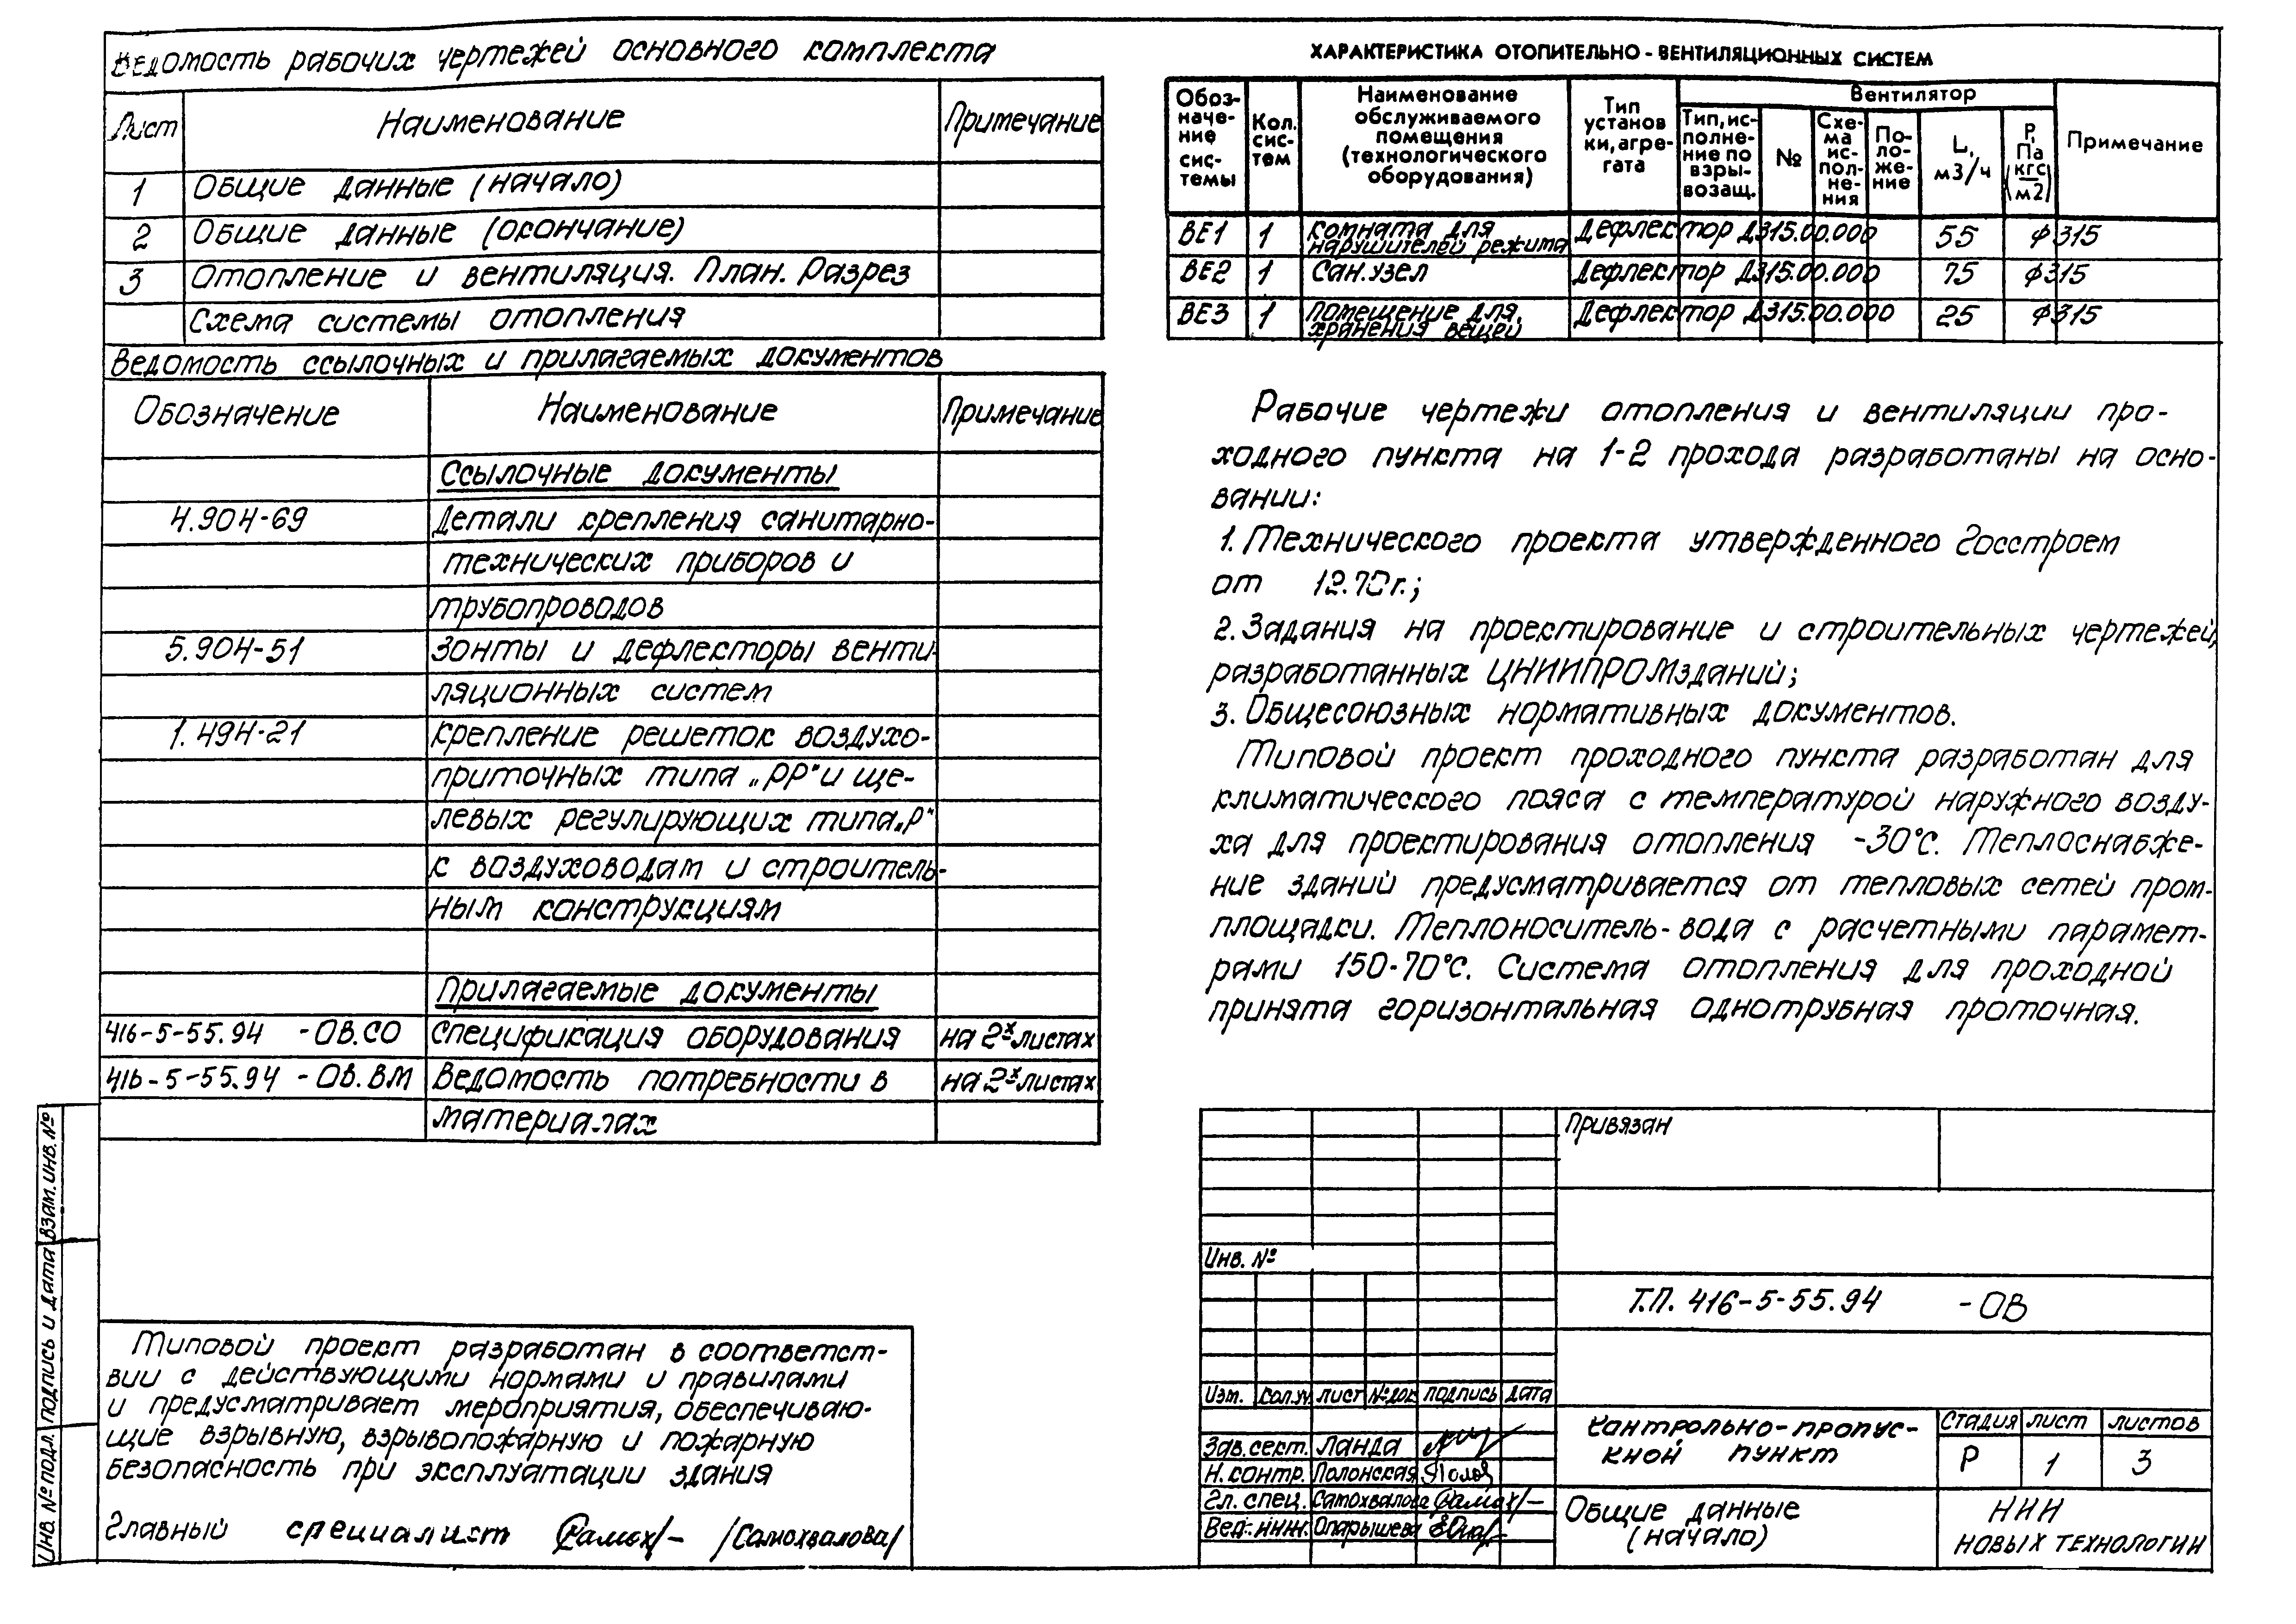 Ведомость рабочих чертежей основного комплекта
Лист Наименование Примечание
1 Общие данные (начало)
2 Общие данные (окончание)
3 Отопление и вентиляция. План. Разрез
Схема системы отопления
Ведомость ссылочных и прилагаемых документов
Обозначение Наименование Примечание
Ссылочные документы
4.904-69 Детали крепления санитарно-
технических приборов и
трубопроводов
5.904-51 Зонты и дефлекторы венти-
ляционных систем
1.494-21 Крепление решеток воздухо-
приточных типа „РР" и ще-
левых регулирующих типа „Р"
к воздуховодам и строитель-
ным конструкциям
Прилагаемые документы
416-5-55.94 -ОВ.СО Спецификация оборудования на 2х листах
416-5-55.94 -ОВ.ВМ Ведомость потребности в на 2х листах
материалах
Типовой проект разработан в соответст-
вии с действующими нормами и правилами
и предусматривает мероприятия, обеспечиваю-
щие взрывную, взрывопожарную и пожарную
безопасность при эксплуатации здания
Главный специалист /Самохвалова/
Инв. № подл. Подпись и дата Взам. инв. №
ХАРАКТЕРИСТИКА ОТОПИТЕЛЬНО-ВЕНТИЛЯЦИОННЫХ СИСТЕМ
Обоз-
наче-
ние
сис-
темы
Кол.
сис-
тем
Наименование
обслуживаемого
помещения
(технологического
оборудования)
Тип
установ
ки, агре-
гата
Вентилятор
Тип, ис-
полне-
ние по
взры-
возащ.
№
Схе-
ма
ис-
пол-
не-
ния
По-
ло-
же-
ние
L,
м3/ч
Р,
Па
(кгс/м2)
Примечание
ВЕ1 1 Комната для нарушителей режима Дефлектор Д315.00.000 55 ф315
ВЕ2 1 Сан.узел Дефлектор Д315.00.000 75 ф315
ВЕ3 1 Помещение для хранения вещей Дефлектор Д315.00.000 25 ф315
Рабочие чертежи отопления и вентиляции про-
ходного пункта на 1-2 прохода разработаны на осно-
вании:
1. Технического проекта утвержденного Госстроем
от 12.70г.;
2. Задания на проектирование и строительных чертежей,
разработанных ЦНИИПРОМзданий;
3. Общесоюзных нормативных документов.
Типовой проект проходного пункта разработан для
климатического пояса с температурой наружного возду-
ха для проектирования отопления -30°С. Теплоснабже-
ние зданий предусматривается от тепловых сетей пром-
площадки. Теплоноситель-вода с расчетными парамет-
рами 150-70°С. Система отопления для проходной
принята горизонтальная однотрубная проточная.
Привязан
Инв. №
Т.П. 416-5-55.94 -ОВ
Изм. Кол.уч Лист № док Подпись Дата
Зав. сект. Ланда
Н. контр. Полонская
Гл. спец. Самохвалова
Вед. инж. Опарышева
Контрольно-пропуск-
ной пункт
Стадия Лист Листов
Р 1 3
Общие данные
(начало)
НИИ
НОВЫХ ТЕХНОЛОГИИ